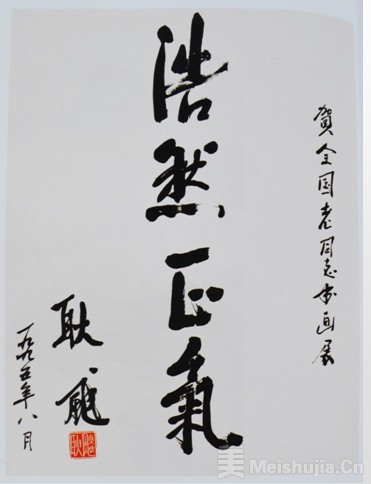 賀全国老同志书画展
浩然正氣
耿飚
一九九五年八月
美 Meishujia.Cn